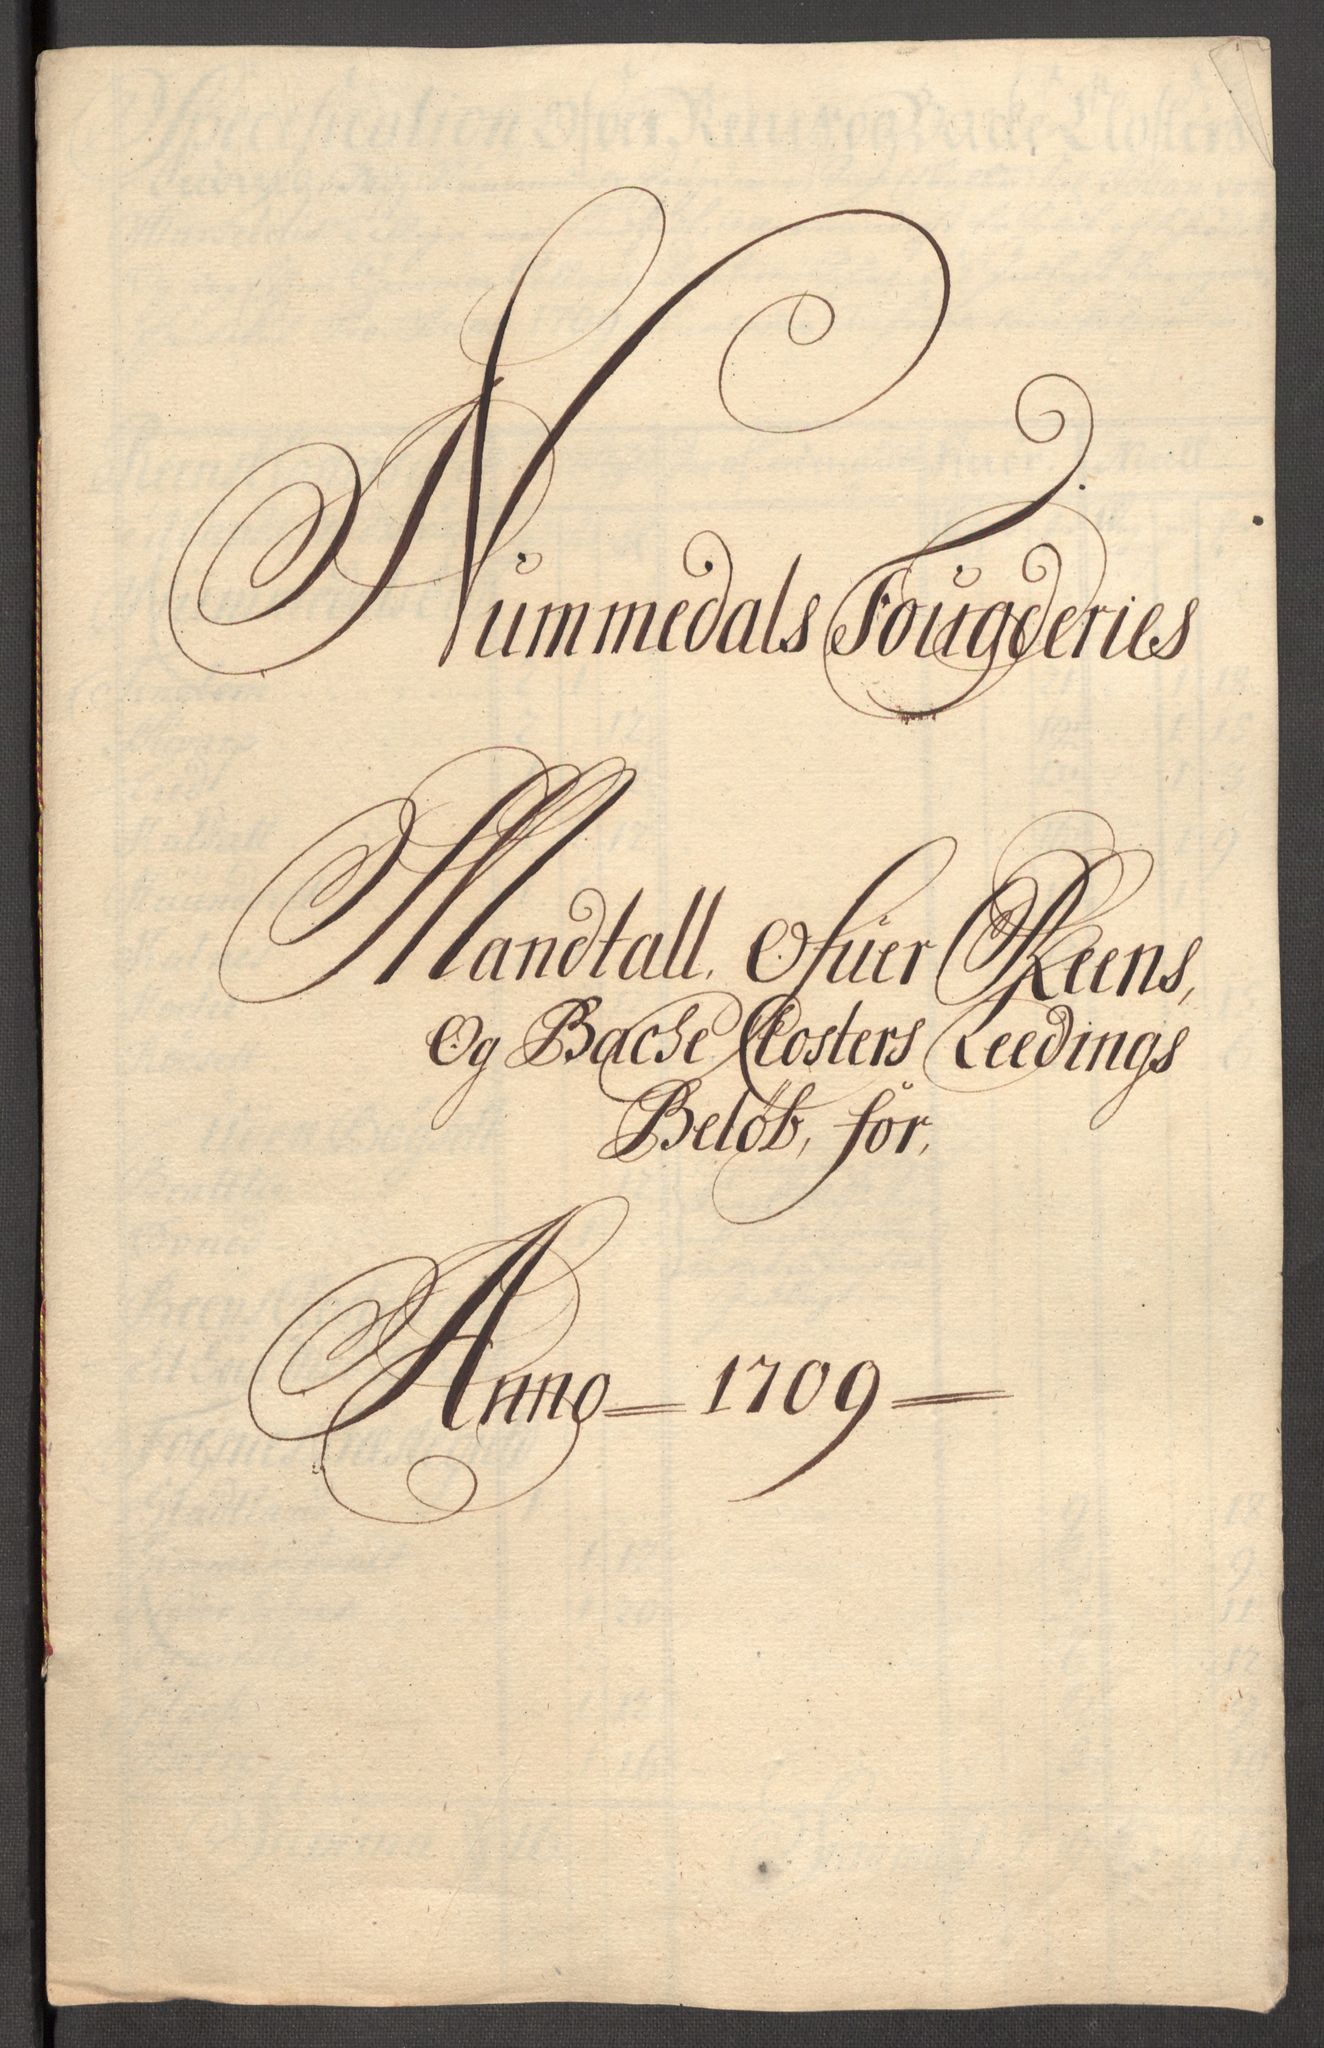 Nummedals Fougderies
Mandtall. Ofuer Reens,
Og Bache Closters Leedings
Beløb, for,
Anno 1709